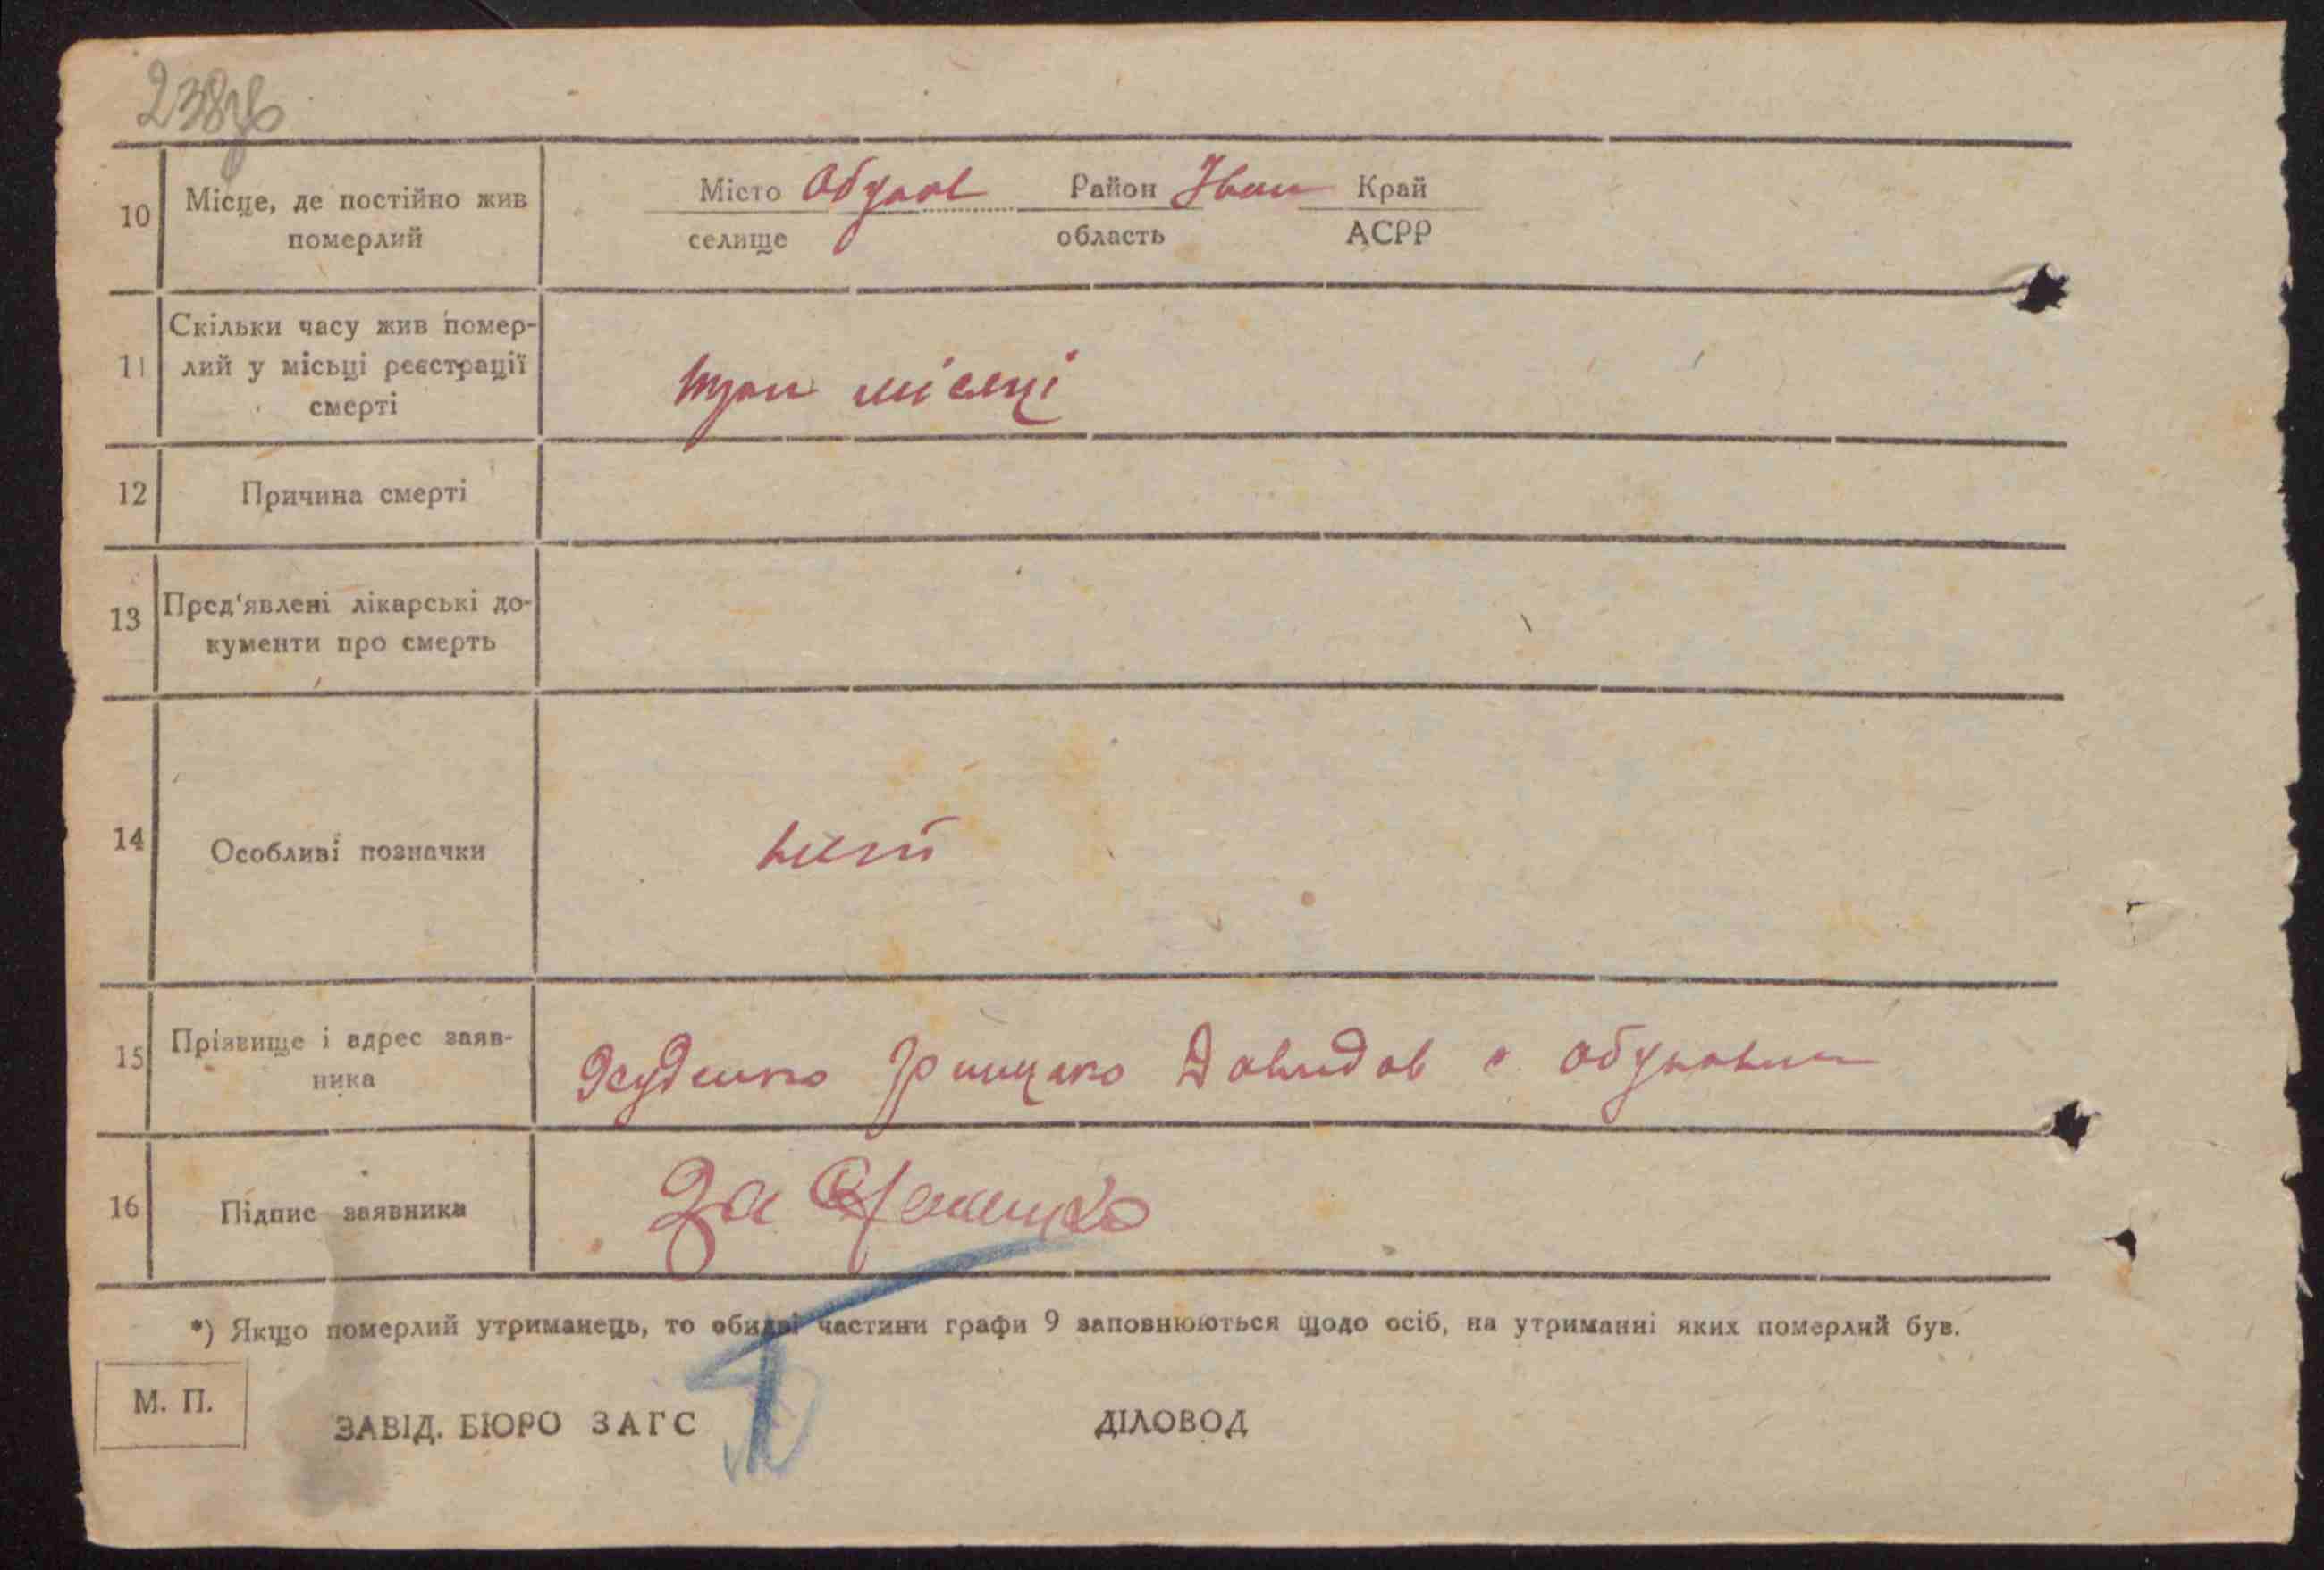 238
10 Місце, де постійно жив померлий
Місто Обухов Район Іван Край
селище область АСРР
11 Скільки часу жив помер-
лий у місьці реєстрації
смерті
три місяці
12 Причина смерті
13 Пред'явлені лікарські до-
кументи про смерть
14 Особливі позначки
нет
15 Прізвище і адрес заяв-
ника
Грицько Давидов с
16 Підпис заявника
За
*) Якщо померлий утриманець, то обидві частини графи 9 заповнюються щодо осіб, на утриманні яких померлий був.
М. П.
ЗАВІД. БЮРО ЗАГС ДІЛОВОД